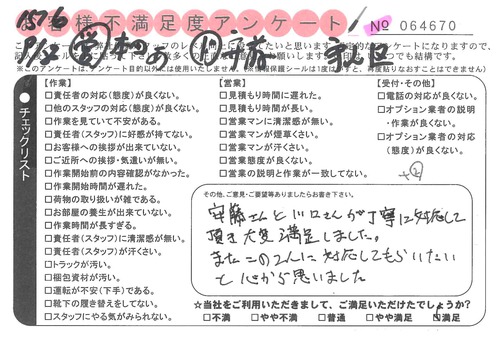 1576
お客様不満足度アンケート
No 064670
※このアンケートは、アンケート目的以外では使用いたしません。
チェックリスト
【作業】
□責任者の対応(態度)が良くない。
□他のスタッフの対応(態度)が良くない。
□作業を見ていて不安がある。
□責任者(スタッフ)に好感が持てない。
□お客様への挨拶が出来ていない。
□ご近所への挨拶・気遣いが無い。
□作業開始前の内容確認がなかった。
□作業開始時間が遅れた。
□荷物の取り扱いが雑である。
□お部屋の養生が出来ていない。
□作業時間が長すぎる。
□責任者(スタッフ)に清潔感が無い。
□責任者(スタッフ)が汗くさい。
□トラックが汚い。
□梱包資材が汚い。
□運転が不安(下手)である。
□靴下の履き替えをしてない。
□スタッフにやる気がみられない。
【営業】
□見積もり時間に遅れた。
□見積もり時間が長い。
□営業マンに清潔感が無い。
□営業マンが煙草くさい。
□営業マンが汗くさい。
□営業態度が良くない。
□営業の説明と作業が一致してない。
【受付・その他】
□電話の対応が良くない。
□オプション業者の説明
・作業が良くない。
□オプション業者の対応
(態度)が良くない。
その他、ご意見・ご要望等ありましたらお書き下さい。
安藤さんと川口さんが丁寧に対応して
頂き大変満足しました。
またこの2人に対応してもらいたい
と心から思いました
☆当社をご利用いただきまして、ご満足いただけたでしょうか?
□不満 □やや不満 □普通 □やや満足 □満足